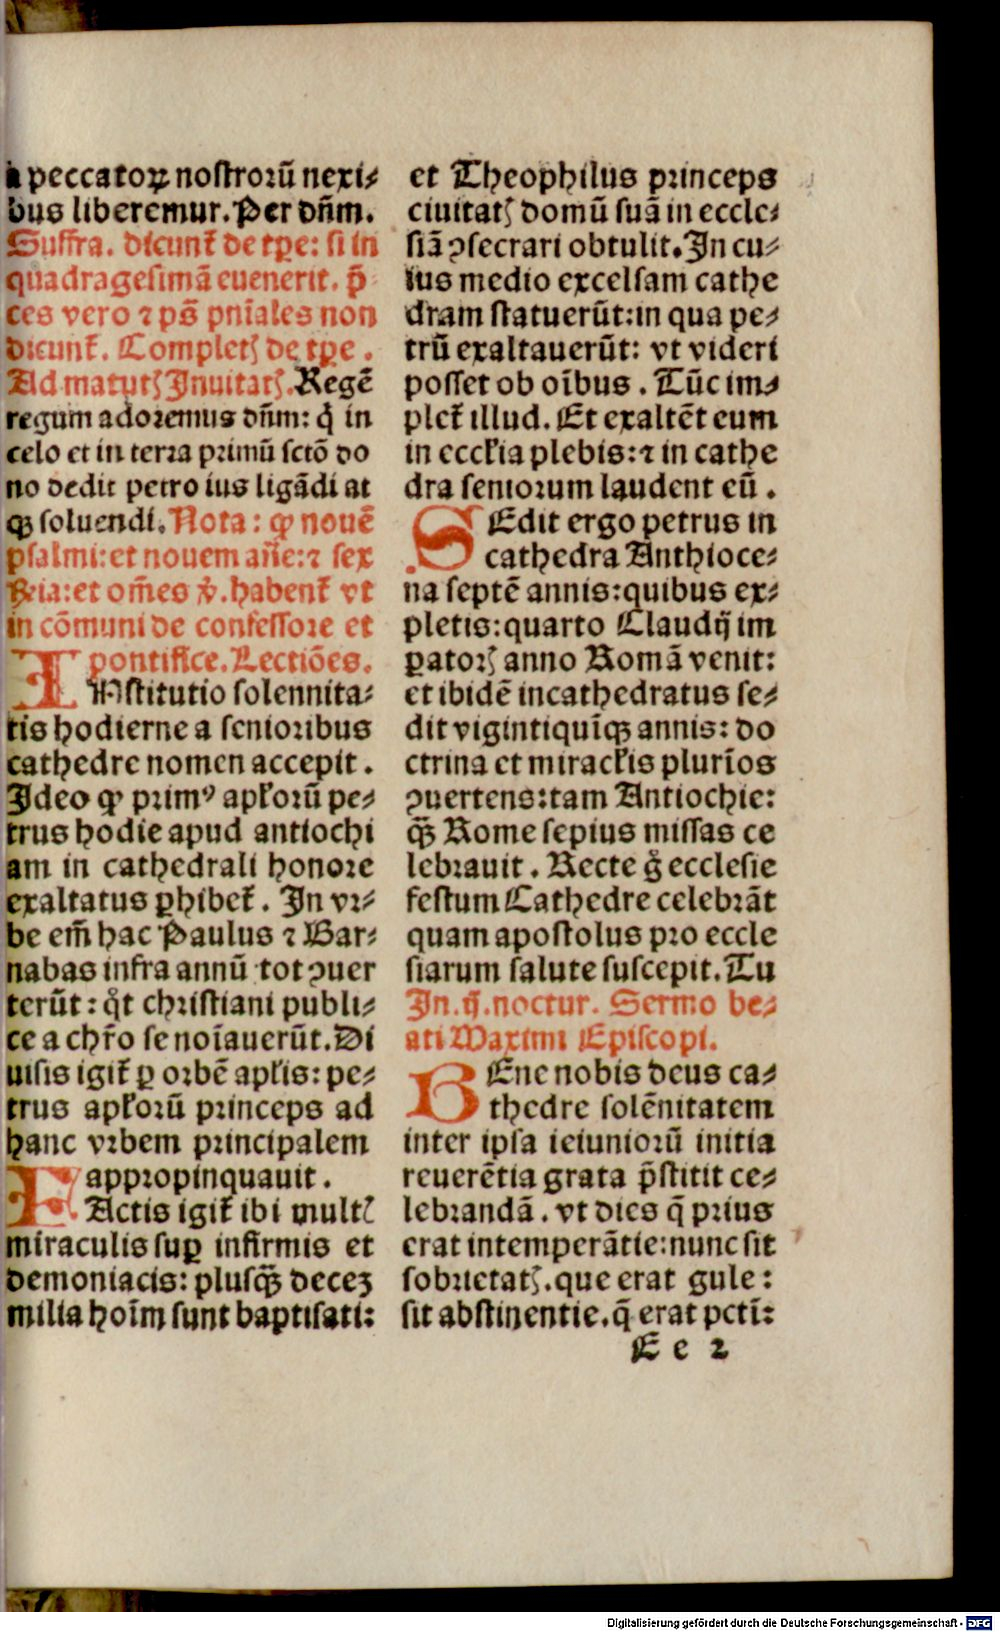 a peccatoꝝ nostrorū nexi⸗
bus liberemur. Per dn̄m.
Suffra. dicunt̄ de tp̄e: si in
quadragesimā euenerit. p̄
ces vero ⁊ ps̄ pn̄iales non
dicunt̄. Completꝭ de tp̄e.
Ad matutꝭ Inuitatꝭ. Regē
regum adoremus dn̄m: q̇ in
celo et in terra primū sctō do
no dedit petro ius ligādi at
qꝫ soluendi. Nota: ꝙ nouē
psalmi: et nouem an̄e: ⁊ sex
Rn̄ia: et om̄es v̇. habent̄ vt
in cōmuni de confessore et
pontifice. Lectiōes.
INstitutio solennita⸗
tis hodierne a senioribus
cathedre nomen accepit.
Ideo ꝙ primꝰ apl̄orū pe⸗
trus hodie apud antiochi
am in cathedrali honore
exaltatus ꝑhibet̄. In vr⸗
be em̄ hac Paulus ⁊ Bar⸗
nabas infra annū tot ꝯuer
terūt: qͦt christiani publi⸗
ce a chr̄o se noīauerūt. Di
uisis igit̄ ꝑ orbē apl̄is: pe⸗
trus apl̄orū princeps ad
hanc vrbem principalem
appropinquauit.
FActis igit̄ ibi multꝭ
miraculis suꝑ infirmis et
demoniacis: plusqꝫ̄ decez
milia hoīm sunt baptisati:
et Theophilus princeps
ciuitatꝭ domū suā in eccle⸗
siā ꝯsecrari obtulit. In cu⸗
ius medio excelsam cathe
dram statuerūt: in qua pe⸗
trū exaltauerūt: vt videri
posset ob oībus. Tūc im⸗
plet̄ illud. Et exaltēt eum
in eccl̄ia plebis: ⁊ in cathe
dra seniorum laudent eū.
SEdit ergo petrus in
cathedra Anthioce⸗
na septē annis: quibus ex⸗
pletis: quarto Claudij im
ꝑatorꝭ anno Romā venit:
et ibidē incathedratus se⸗
dit vigintiquīqꝫ annis: do
ctrina et miracl̄is plurīos
ꝯuertens: tam Antiochie:
qꝫ̄ Rome sepius missas ce
lebrauit. Recte gͦ ecclesie
festum Cathedre celebrāt
quam apostolus pro eccle
siarum salute suscepit. Tu
In. ij. noctur. Sermo be⸗
ati Maximi Episcopi.
BEne nobis deus ca⸗
thedre solēnitatem
inter ipsa ieiuniorū initia
reuerētia grata p̄stitit ce⸗
lebrandā. vt dies q̄ prius
erat intemperātie: nunc sit
sobrietatꝭ. que erat gule:
sit abstinentie. q̄ erat pctī:
E e 2
Digitalisierung gefördert durch die Deutsche Forschungsgemeinschaft - DFG